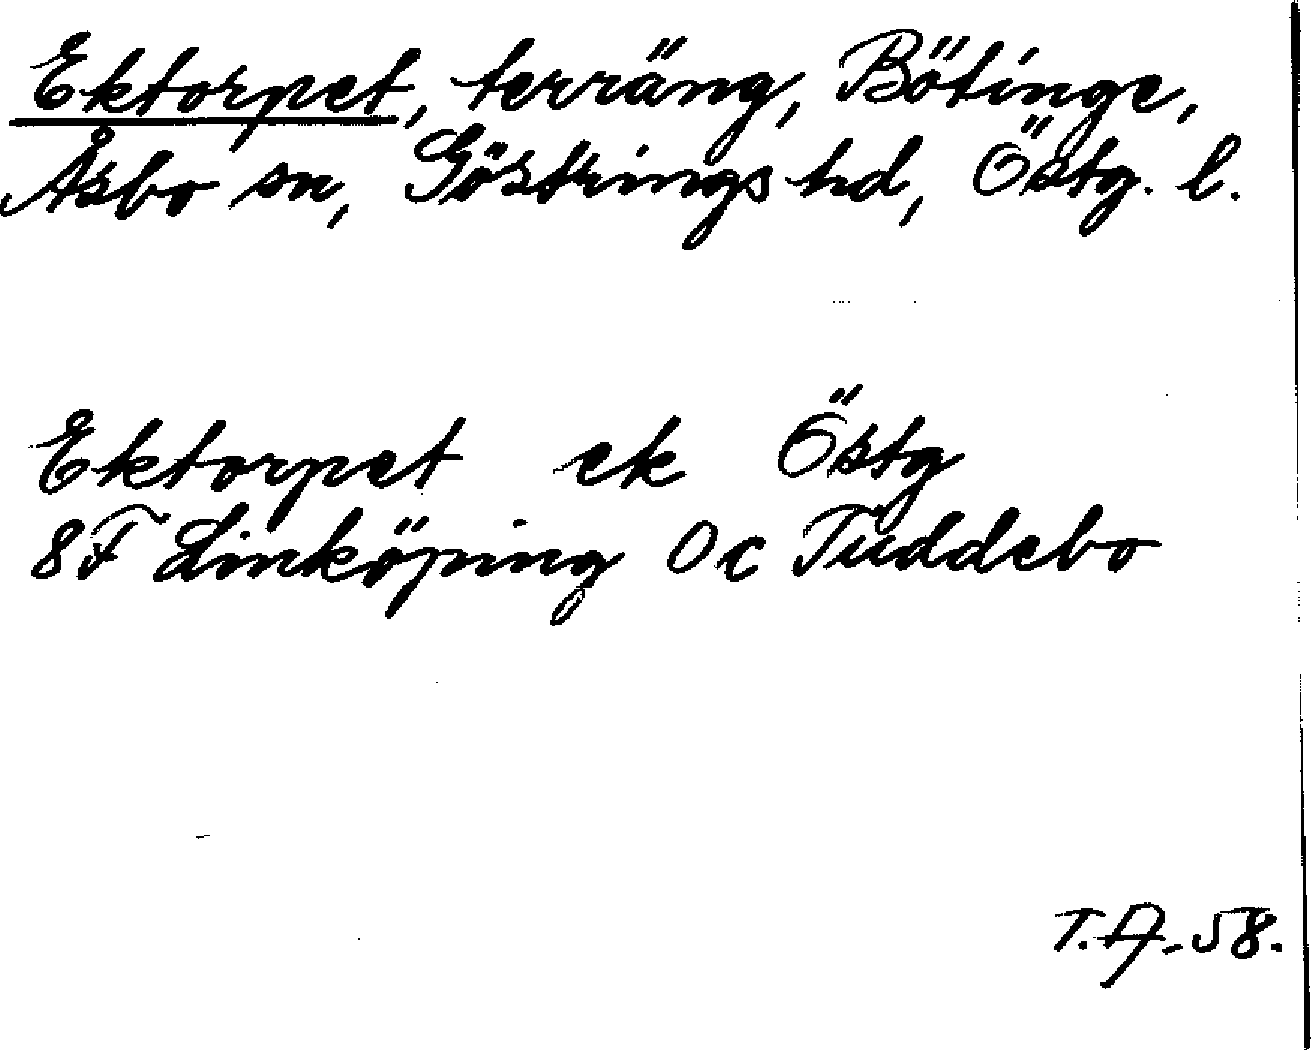 Ektorpet, terräng, Bötinge,
Åsbo sn, Göstrings hd, Östg. l.
Ektorpet ek Östg
8F Linköping 0c Tuddebo
T.A-58.